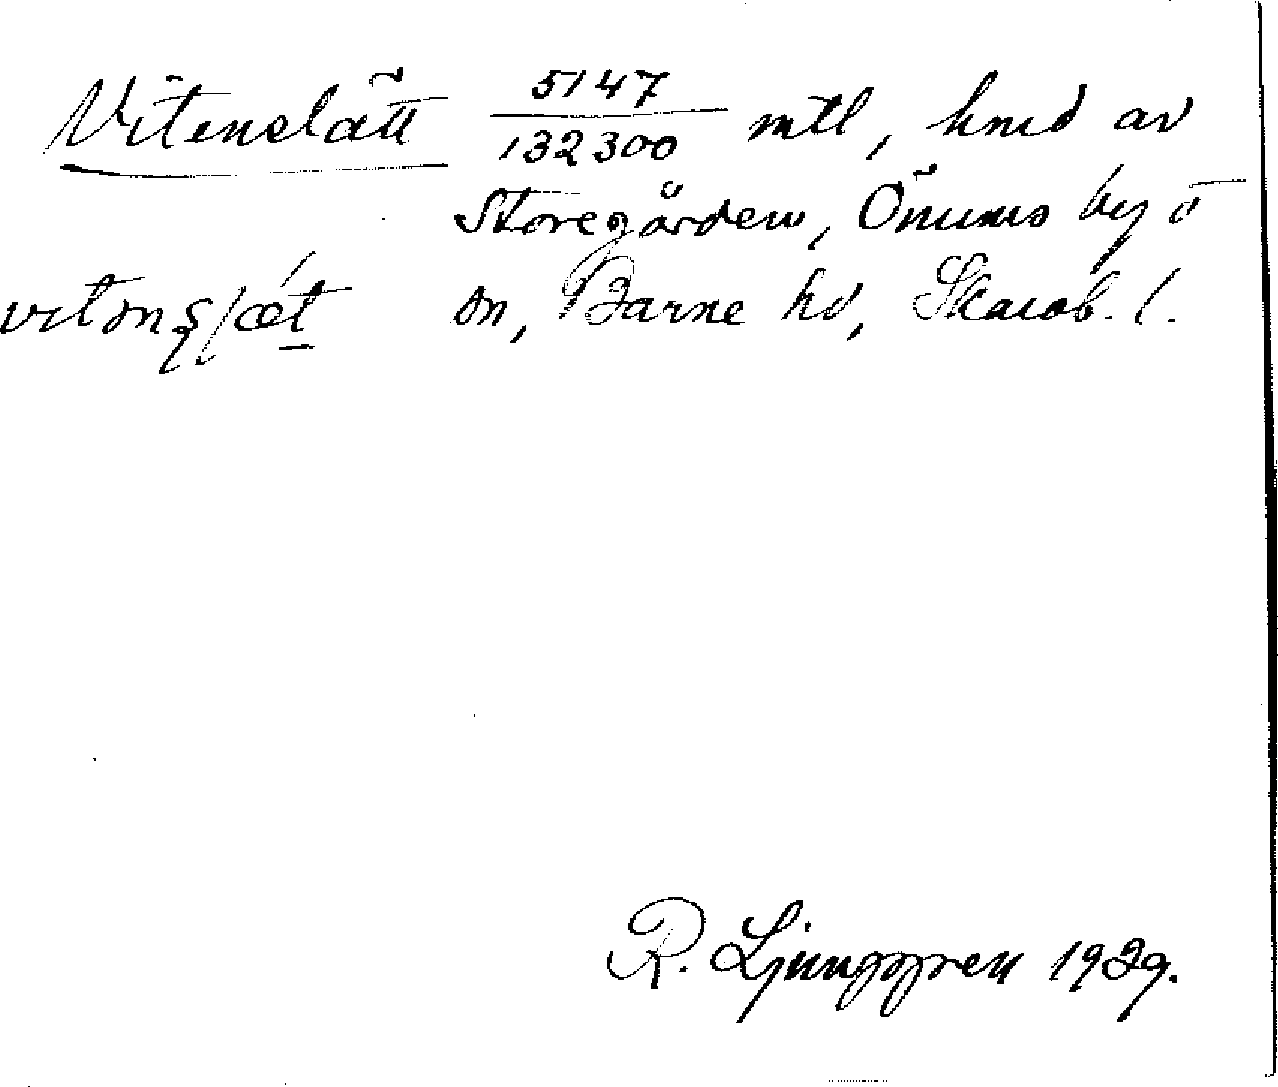 Vitenslätt 5147/132300 mtl, hmd av
Storegården, Önums by o
sn, Barne hd, Skarab. l.
R. Ljunggren 1929.